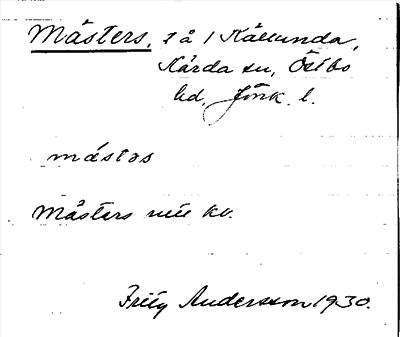 Måsters, t å / Kållunda,
Kärda sn, Östbo
hd, Jönk. l.
måstas
Måsters mee kv.
Fritz Andersson 1930.